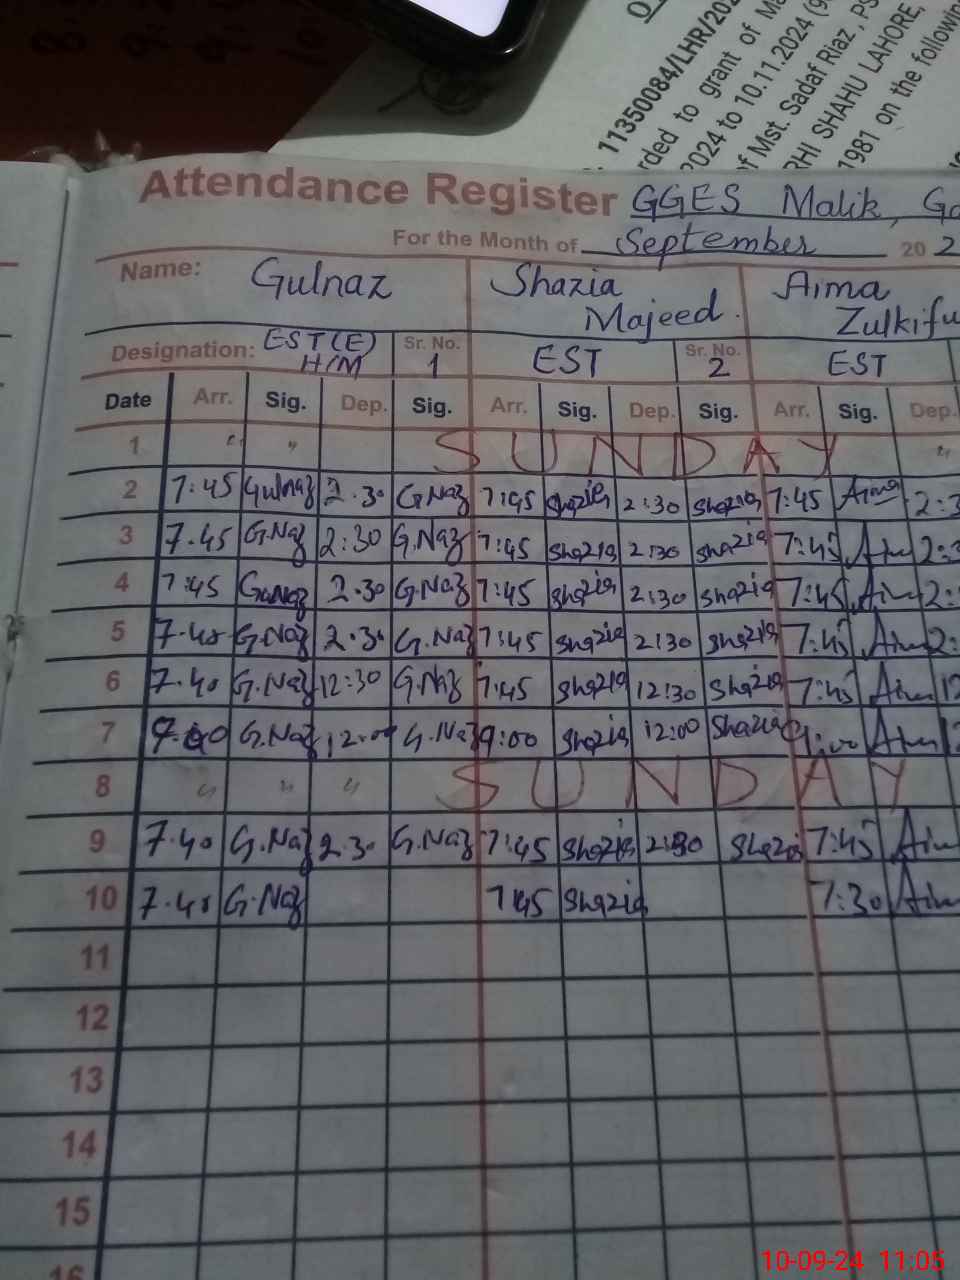 11350084/LHR/202
rded to grant of Ma
2024 to 10.11.2024 (9
of Mst. Sadaf Riaz, PS
RHI SHAHU LAHORE,
1981 on the following
Attendance Register GGES Malik, Ga
For the Month of September 20 2
Name: Gulnaz Shazia Majeed. Aima Zulkifu
Designation: EST(E) H/M Sr. No. 1 EST Sr. No. 2 EST
Date Arr. Sig. Dep. Sig. Arr. Sig. Dep. Sig. Arr. Sig. Dep.
1 " " SUNDAY "
2 7:45 Gulnaz 2.30 G.Naz 7:45 Shazia 2:30 Shazia 7:45 Aima 2:3
3 7.45 G.Naz 2:30 G.Naz 7:45 Shazia 2:30 Shazia 7:45 Aim 2:3
4 7:45 G.Naz 2.30 G.Naz 7:45 Shazia 2:30 Shazia 7:45 Aim 2:
5 G.Naz 2.30 G.Naz 7:45 Shazia 2:30 Shazia 7:45 Aim 2:
6 7.40 G.Naz 12:30 G.Naz 7:45 Shazia 12:30 Shazia 7:45 Aim 12
7 G.Naz 12:00 G.Naz 9:00 Shazia 12:00 Shazia 9:00 Aim 12
8 " " " SUNDAY
9 7.40 G.Naz 2.30 G.Naz 7:45 Shazia 2:30 Shazia 7:45 Aim
10 7.40 G.Naz 7:45 Shazia 7:30 Aim
11
12
13
14
15
16
10-09-24 11:05